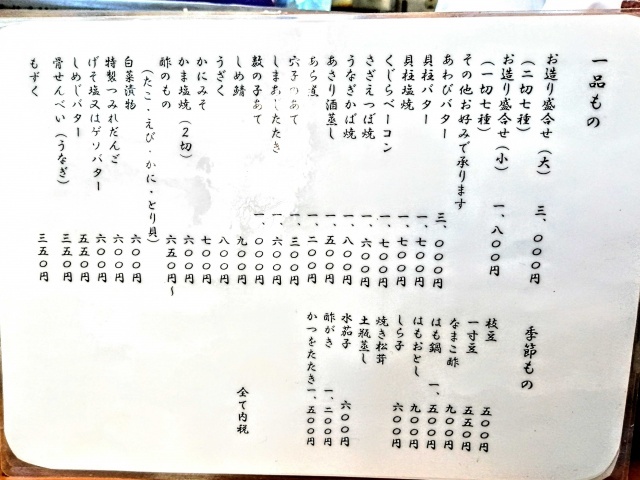 一品もの
お造り盛合せ(大) 三、〇〇〇円
(二切七種)
お造り盛合せ(小) 一、八〇〇円
(一切七種)
その他お好みで承ります
あわびバター 三、〇〇〇円
貝柱バター 一、七〇〇円
貝柱塩焼 一、七〇〇円
くじらベーコン 一、七〇〇円
さざえつぼ焼 一、六〇〇円
うなぎかば焼 一、八〇〇円
あさり酒蒸し 一、五〇〇円
あら煮 一、二〇〇円
穴子のあて 一、三〇〇円
しまあじたたき 一、六〇〇円
数の子あて 一、〇〇〇円
しめ鯖 九〇〇円
うざく 八〇〇円
かにみそ 七〇〇円
かま塩焼(2切) 六〇〇円
酢のもの 六五〇円〜
(たこ・えび・かに・とり貝)
白菜漬物 六〇〇円
特製つみれだんご 六〇〇円
げそ塩又はゲソバター 六〇〇円
しめじバター 五五〇円
骨せんべい(うなぎ) 三五〇円
もずく 三五〇円
季節もの
枝豆 五〇〇円
一寸豆 五五〇円
なまこ酢 九〇〇円
はも鍋 一、五〇〇円
はもおとし 九〇〇円
しら子 六〇〇円
焼き松茸
土瓶蒸し
水茄子 六〇〇円
酢がき 一、二〇〇円
かつをたたき 一、五〇〇円
全て内税